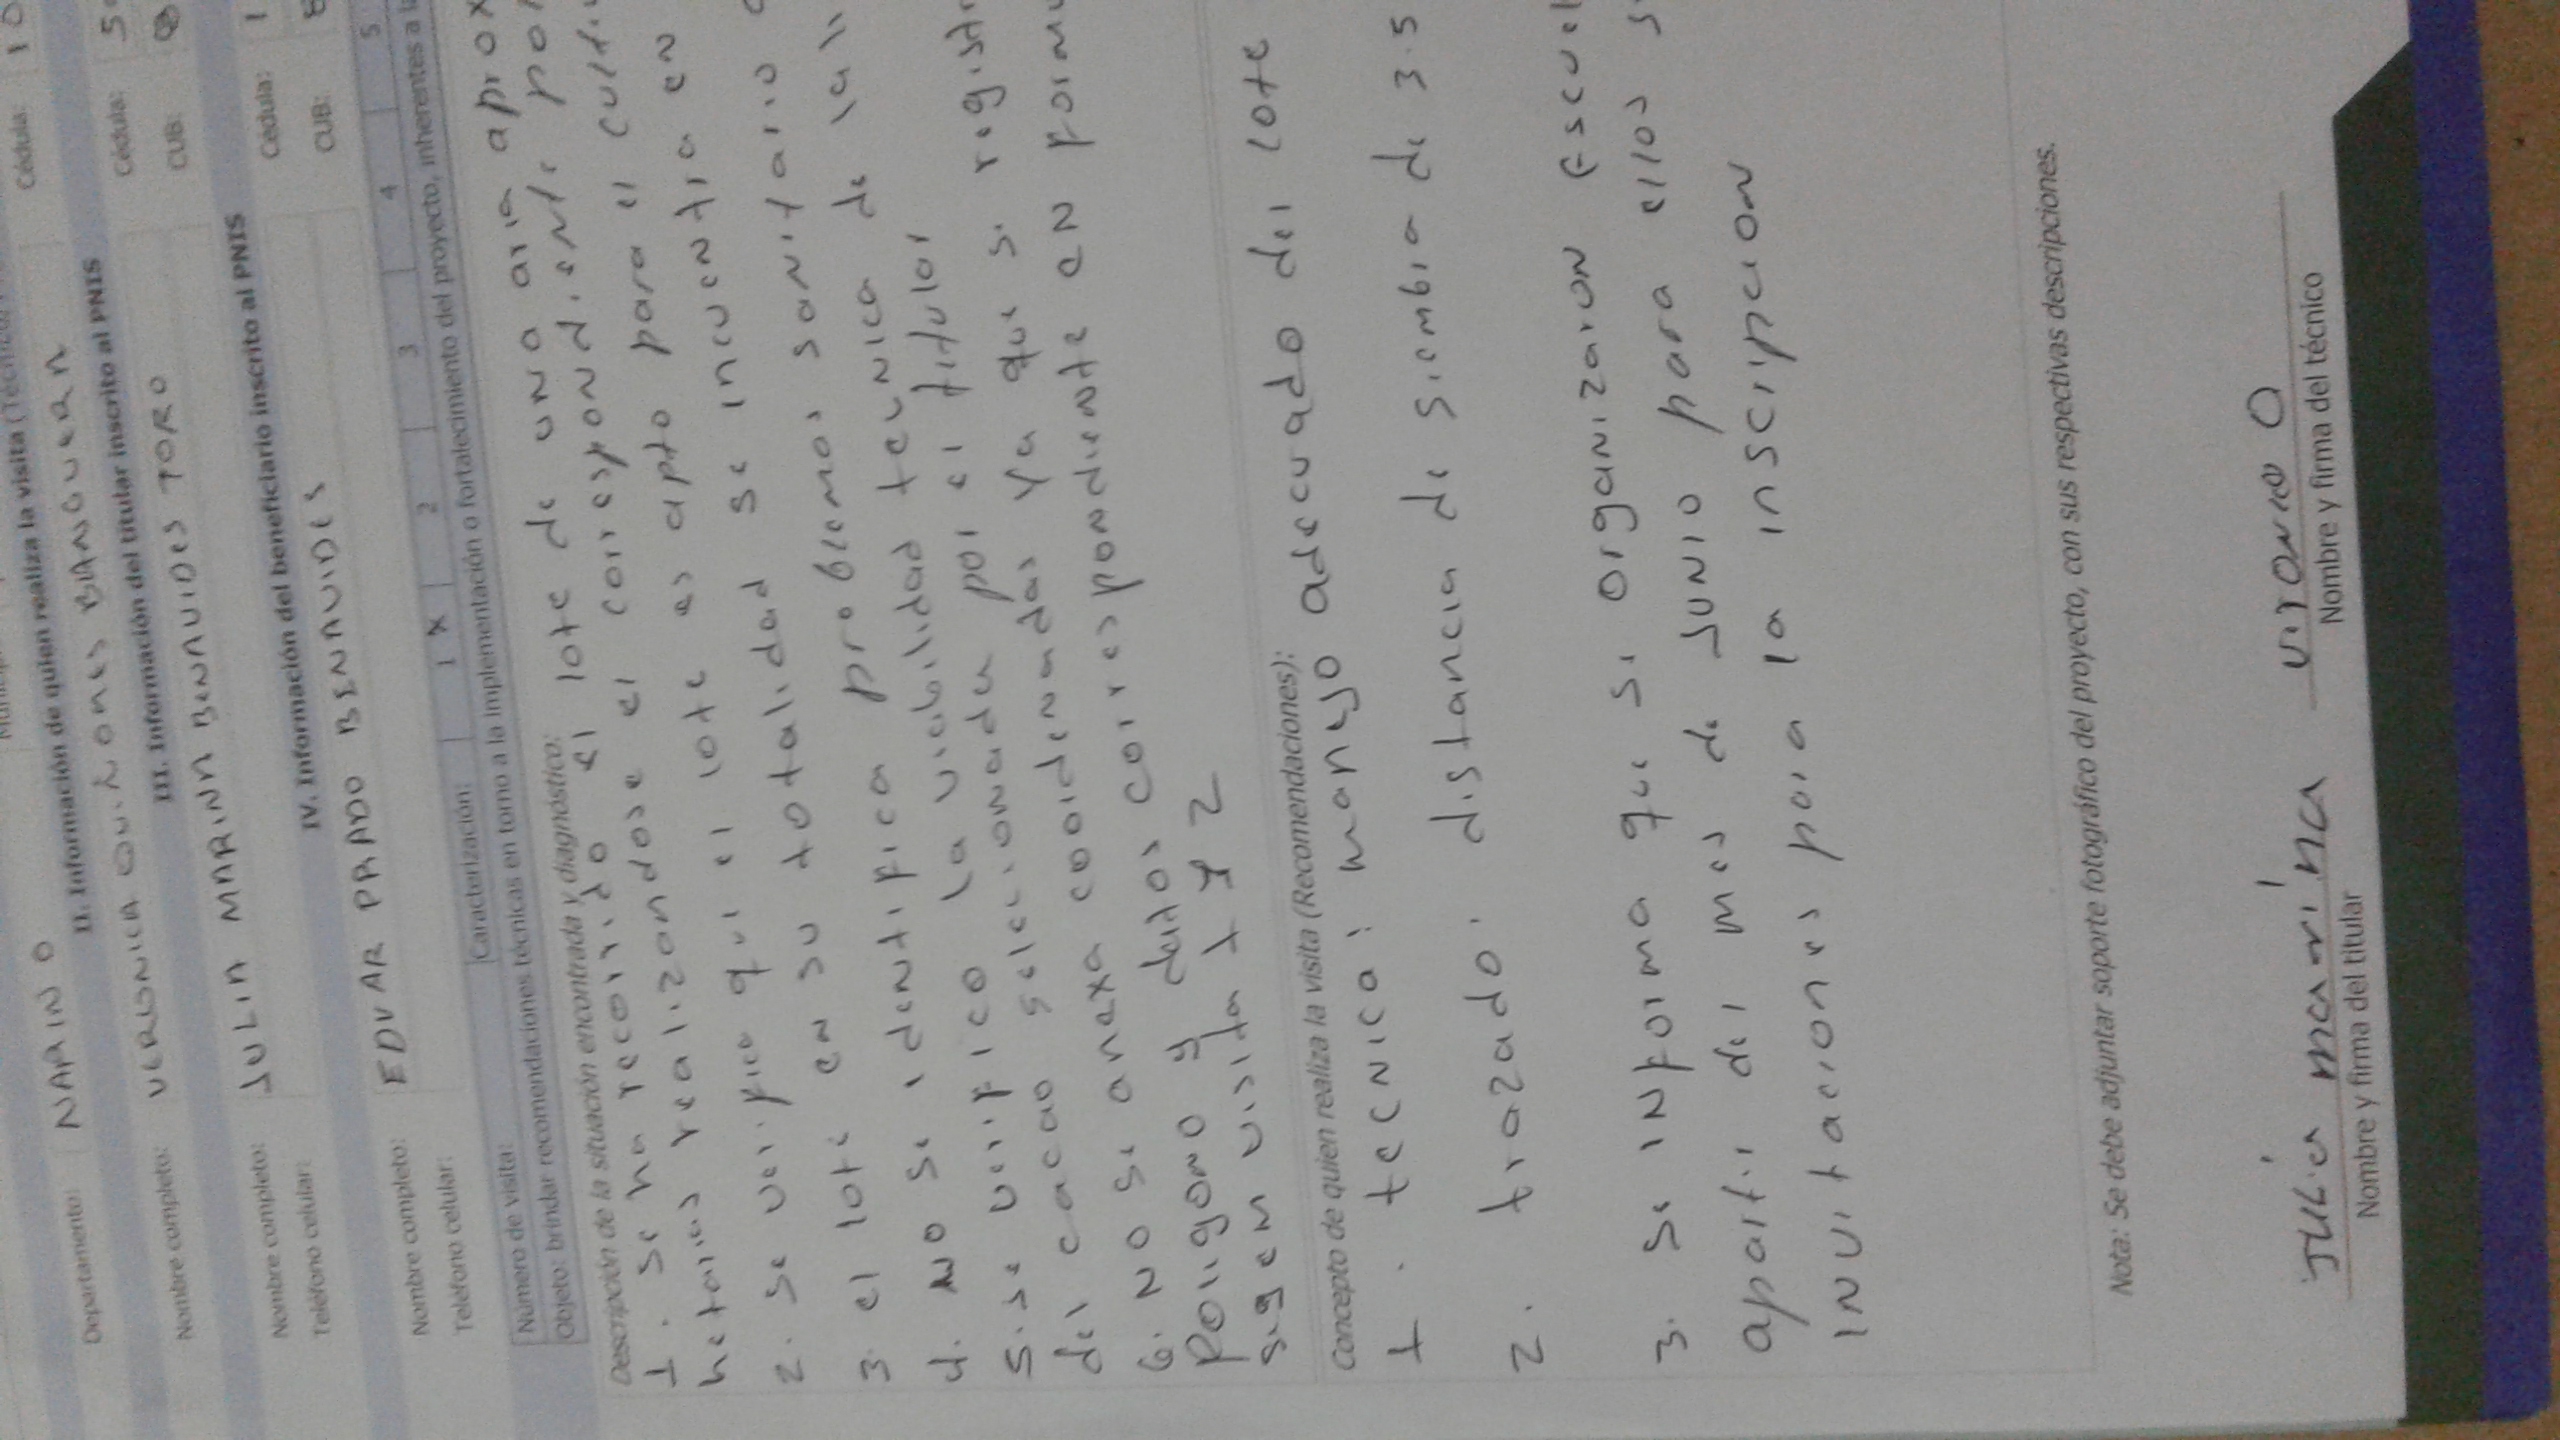 Cédula: 10
II. Información de quien realiza la visita
Departamento: NARIÑO
Nombre completo: VERONICA QUIÑONES BANGUERA Cédula: 5
III. Información del titular inscrito al PNIS
Nombre completo: JULIA MARINA BENAVIDES TORO CUB: 8
Teléfono celular:
IV. Información del beneficiario inscrito al PNIS
Nombre completo: EDVAR PRADO BENAVIDES Cédula: 1
Teléfono celular: CUB: 8
Número de visita: Caracterización: 1 X 2 3 4 5
Objeto: brindar recomendaciones técnicas en torno a la implementación o fortalecimiento del proyecto, inherentes a la
Descripción de la situación encontrada y diagnóstico:
1. se ha recorrido el lote de una aria aprox
hetarias realizandose el correspondiente por
2. se verifico que el lote es apto para el cultiv
3. el lote en su totalidad se incuentra en
4. NO se identifica problemas sanitario
5. se verifico la viabilidad tecnica de la
del cacao seleccionada por el titular
6. NO se anexa coordenadas ya que se registr
Poligono y datos correspondiente en formu
seg en visita 1 y 2
Concepto de quien realiza la visita (Recomendaciones):
1. tecnica: manejo adecuado del lote
2. trazado. distancia de siembra de 3.5
3. se informa que se organizaron escuel
apartir del mes de Junio para ellos s
invitaciones para la inscripcion
Nota: Se debe adjuntar soporte fotográfico del proyecto, con sus respectivas descripciones.
Julia marina
Nombre y firma del titular
Nombre y firma del técnico